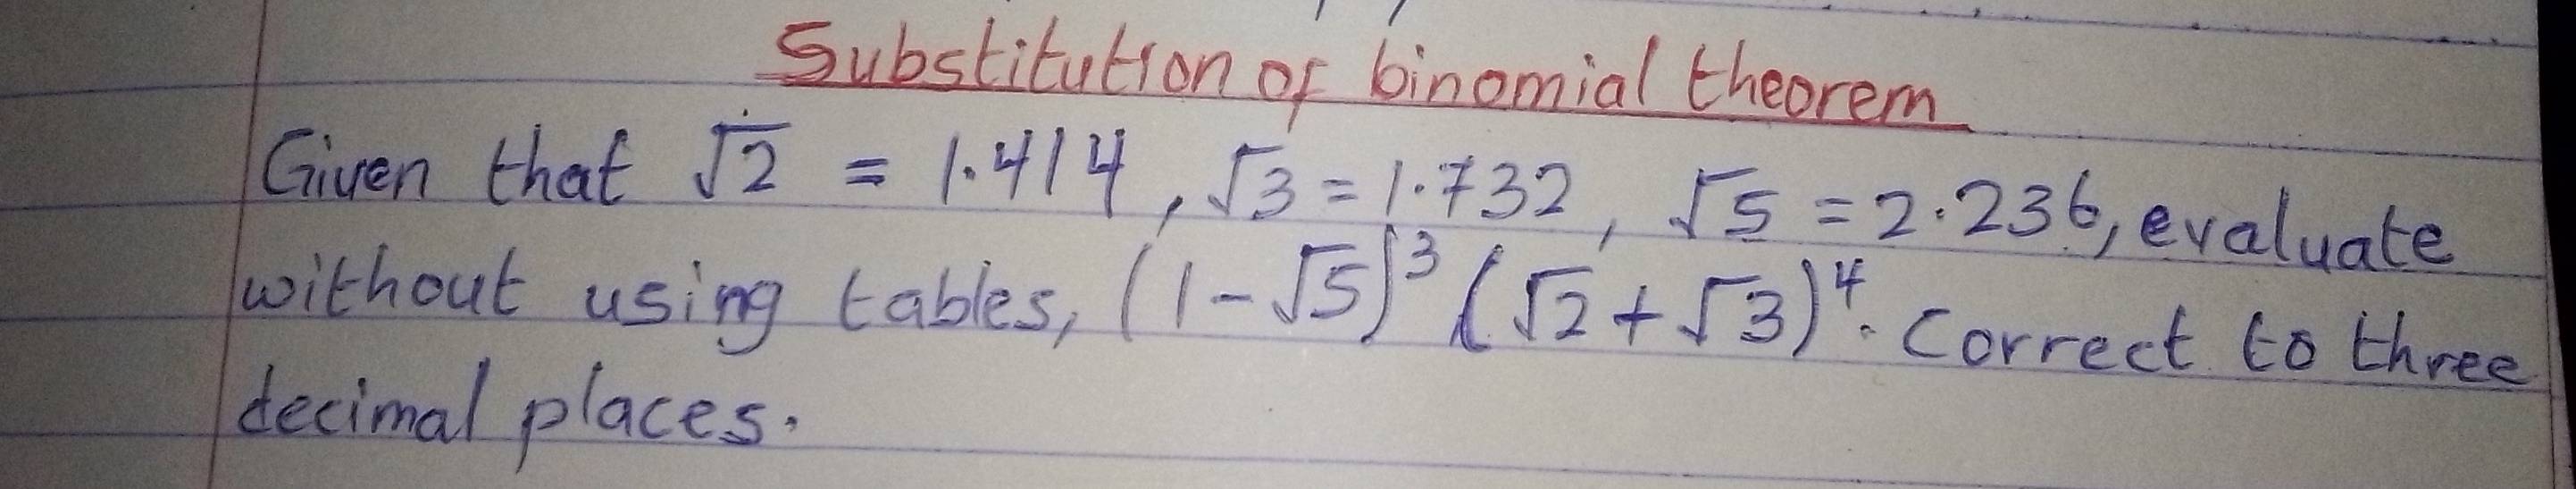 Substitution of binomial theorem
Given that √2 = 1.414, √3 = 1.732, √5 = 2.236, evaluate
without using tables, (1 - √5)³ (√2 + √3)⁴. Correct to three
decimal places.